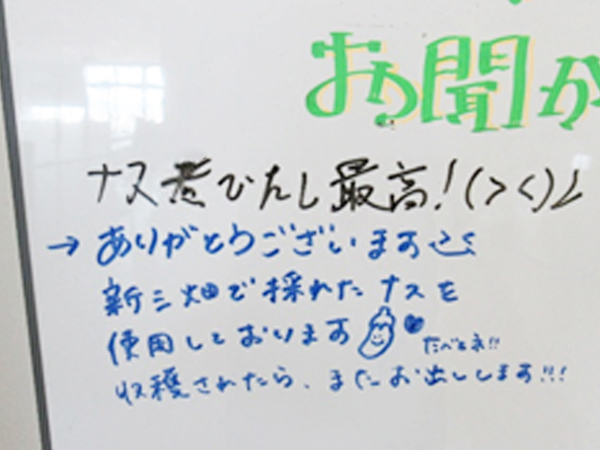 お聞か
ナス煮びたし最高！(＞＜)ノ
→ありがとうございます
新三畑で採れたナスを
使用しております
たべとネ!!
収穫されたら、またお出しします!!!